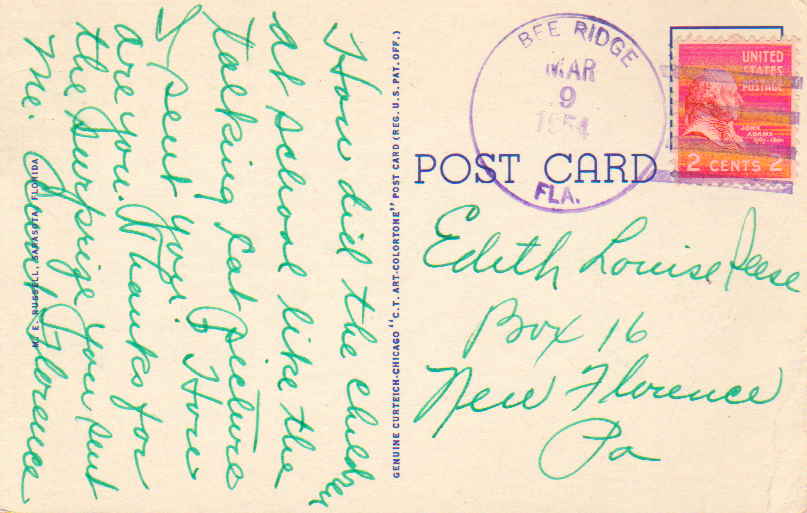 How did the children
at school like the
talking cat picture
I sent you. How
are you. Thanks for
the surprize you sent
me. Aunt Florence
M. E. RUSSELL, SARASOTA, FLORIDA
GENUINE CURTEICH-CHICAGO "C.T. ART-COLORTONE" POST CARD (REG. U.S. PAT. OFF.)
BEE RIDGE
MAR
9
1954
FLA.
UNITED
STATES
POSTAGE
JOHN
ADAMS
2 CENTS 2
POST CARD
Edith Louise Reese
Box 16
New Florence
Pa